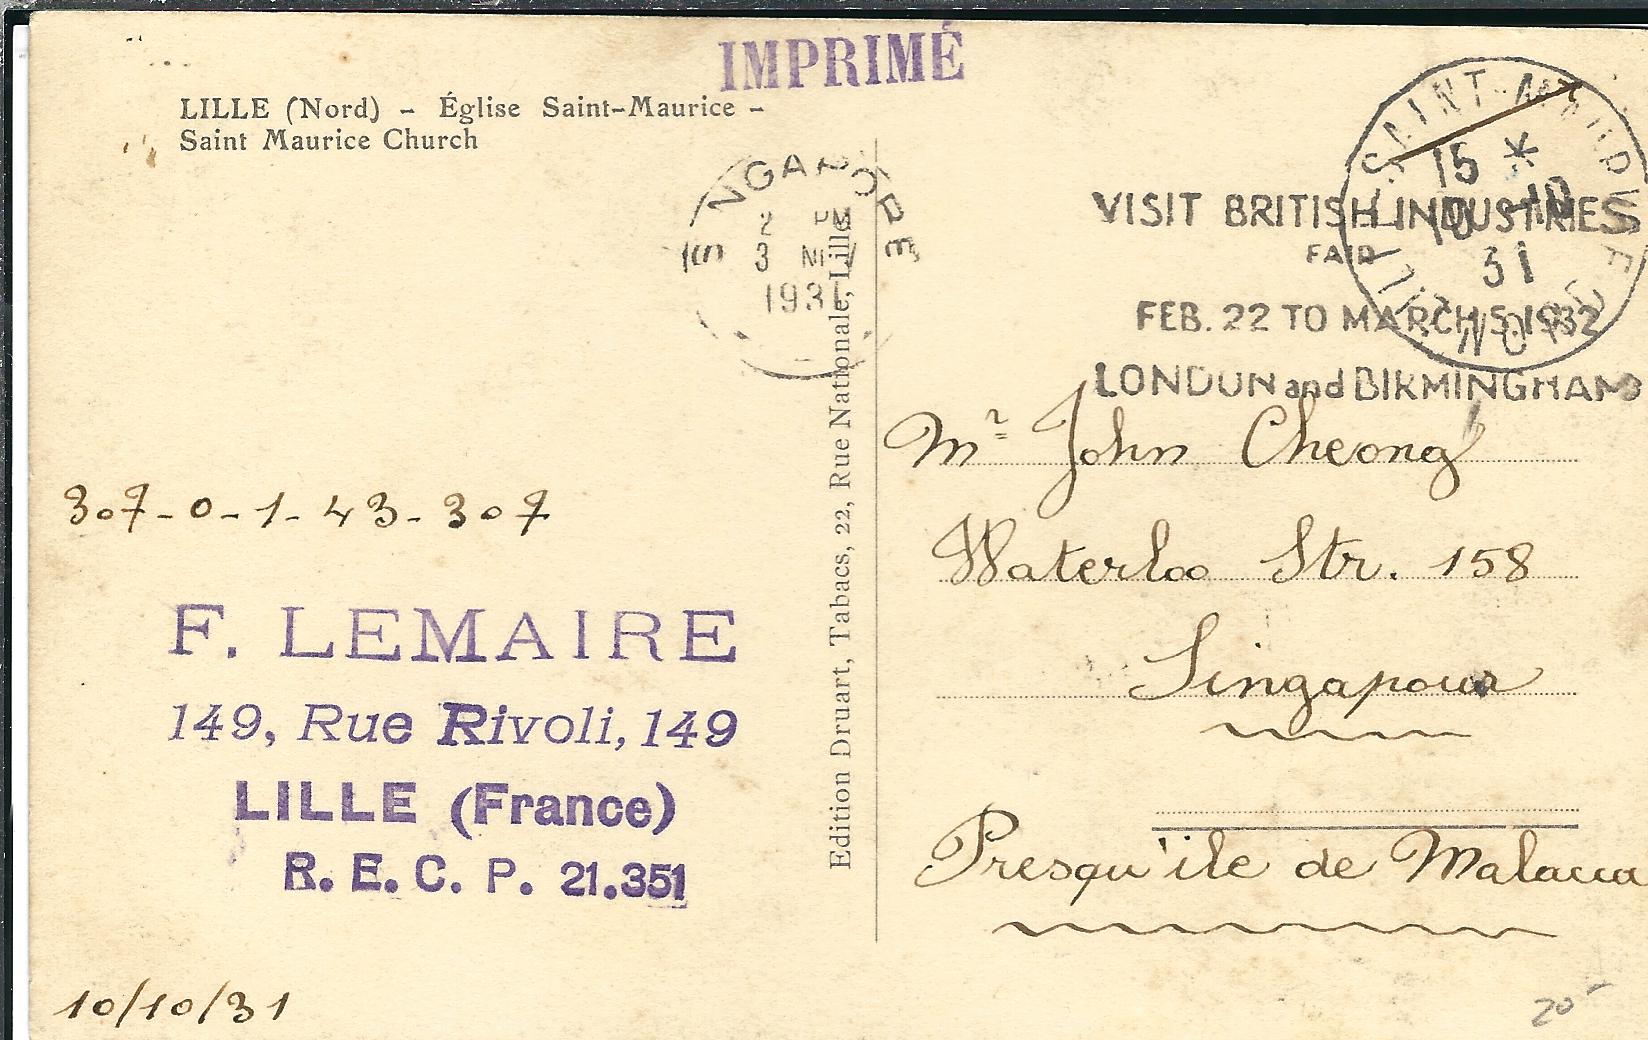 IMPRIMÉ
LILLE (Nord) - Église Saint-Maurice -
Saint Maurice Church
2 PM
3
1931
15 *
10
31
VISIT BRITISH INDUSTRIES
FAIR
FEB. 22 TO MARCH 5. 1932
LONDON and BIRMINGHAM
Edition Druart, Tabacs, 22, Rue Nationale, Lille
Mr John Cheong
Waterloo Str. 158
Singapour
Presqu'ile de Malacca
307-0-1-43-307
F. LEMAIRE
149, Rue Rivoli, 149
LILLE (France)
R. E. C. P. 21.351
10/10/31
20-